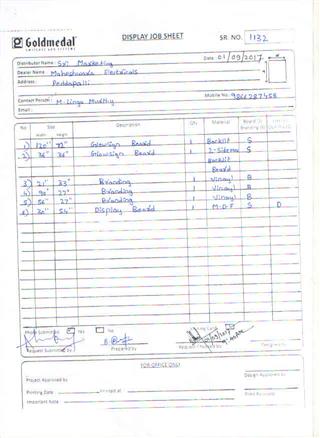 Goldmedal
DISPLAY JOB SHEET
SR. NO. 1132
Distributor Name : Sri Marketing
Date 01/09/2017
Dealer Name Maheshwara Electricals
Address Peddapalli
Contact Person : M. Linga Murthy
Mobile No. 9866287458
Email :
No Size Description Qty Material
Width Height
1) 120" 72" Glowsign Board 1 Backlit S
2) 36" 36" Glowsign Board 1 2-Side S
Backlit
Board
3) 21" 33" Branding 1 Vinayl B
4) 90" 27" Branding 1 Vinayl B
5) 56" 27" Branding 1 Vinayl B
6) 30" 54" Display Board 1 M.D.F S D
Photo Submitted Yes No
Request Submitted by Prepared by
FOR OFFICE ONLY
Project Approved by
Design Approved by
Printing Date
Printed at
Important Note